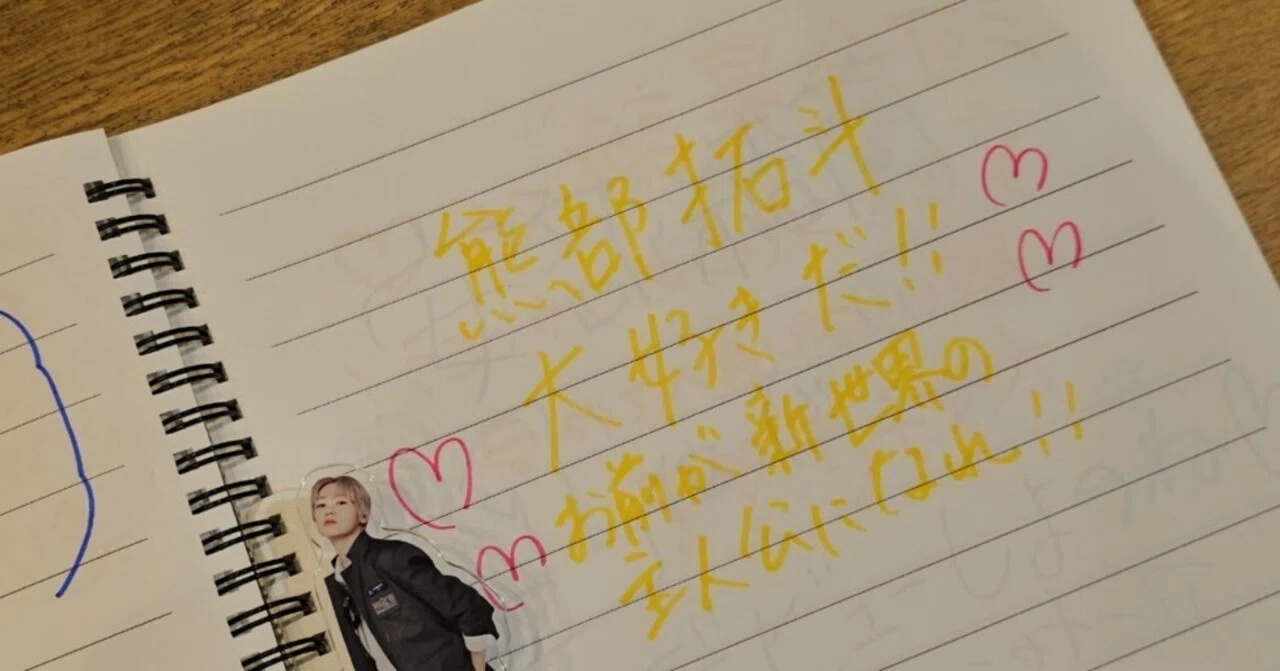 熊部拓斗
大好きだ!!
お前が新世界の
主人公になれ!!